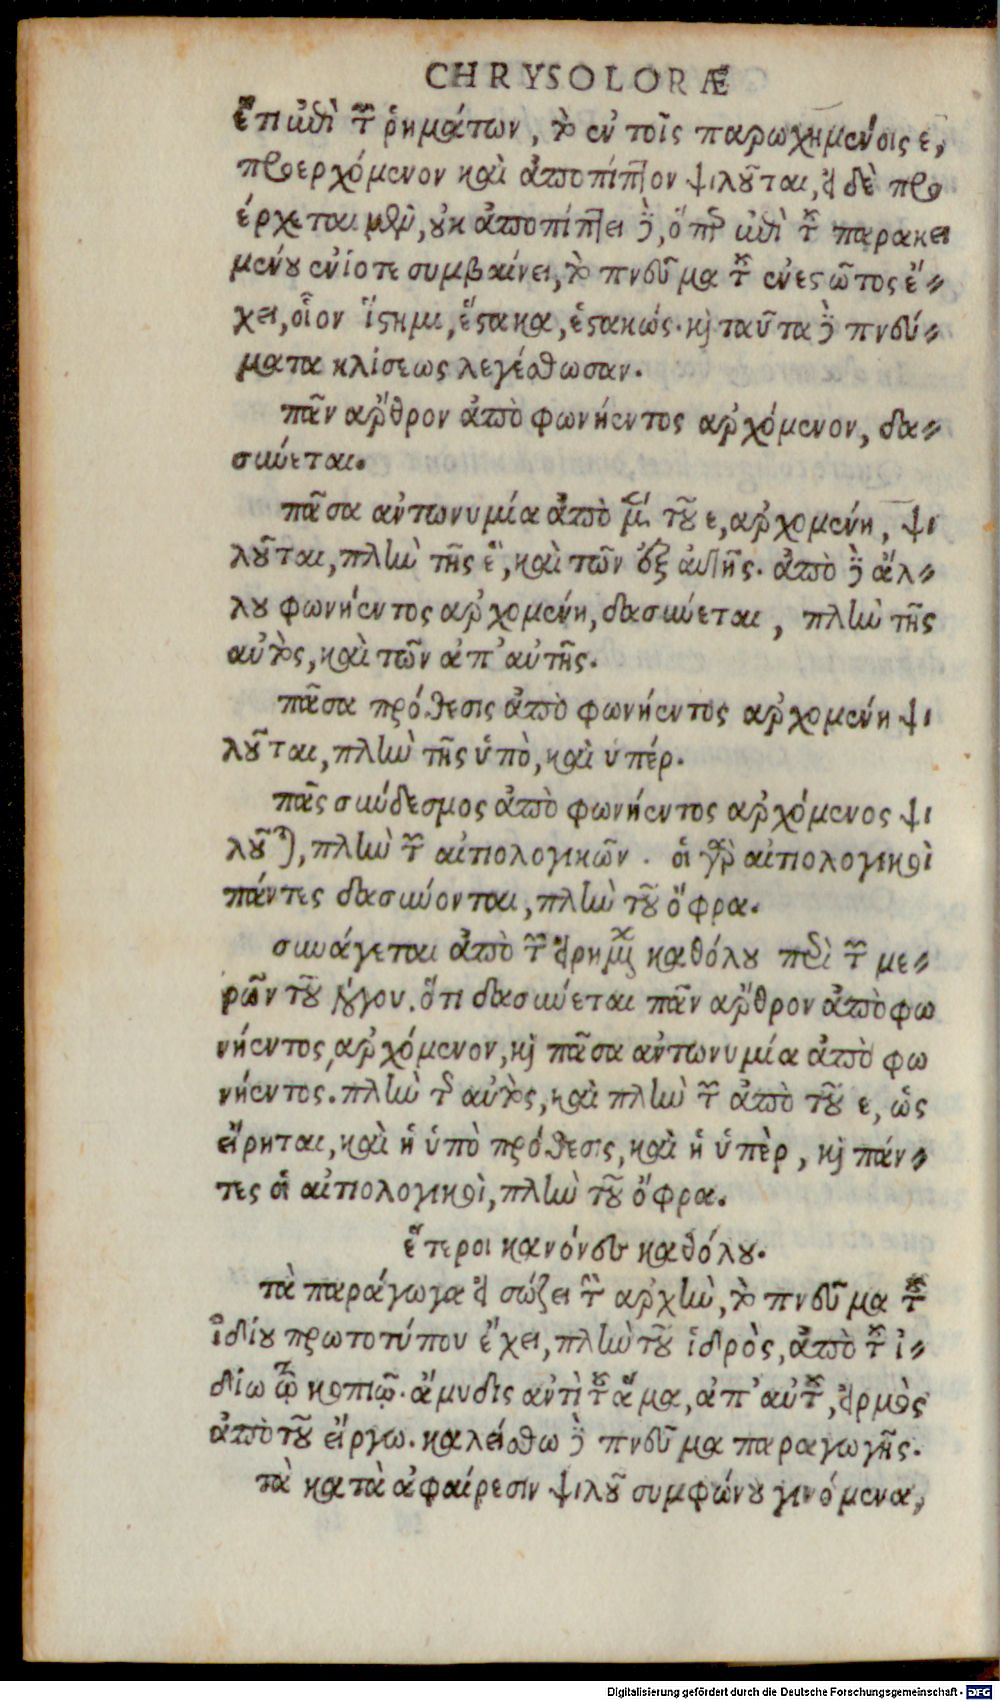 CHRYSOLORÆ
ἔτι ἐπὶ τῶν ῥημάτων, τὸ ἐν τοῖς παρωχημένοις ε,
προερχόμενον καὶ ἀποπίπτον ψιλοῦται, εἰ δὲ προ
έρχεται μὲν, οὐκ ἀποπίπτει δὲ, ὅπερ ἐπὶ τοῦ παρακει
μένου ἐνίοτε συμβαίνει, τὸ πνεῦμα τοῦ ἐνεστῶτος ἔ-
χει, οἷον ἵστημι, ἕστακα, ἑστακώς. καὶ ταῦτα δὲ πνεύ-
ματα κλίσεως λεγέσθωσαν.
πᾶν ἄρθρον ἀπὸ φωνήεντος ἀρχόμενον, δα-
σύνεται.
πᾶσα ἀντωνυμία ἀπὸ μὲν τοῦ ε, ἀρχομένη, ψι
λοῦται, πλὴν τῆς ἓ, καὶ τῶν ἐξ αὐτῆς. ἀπὸ δὲ ἄλ-
λου φωνήεντος ἀρχομένη, δασύνεται, πλὴν τῆς
αὐτὸς, καὶ τῶν ἀπ' αὐτῆς.
πᾶσα πρόθεσις ἀπὸ φωνήεντος ἀρχομένη ψι
λοῦται, πλὴν τῆς ὑπὸ, καὶ ὑπέρ.
πᾶς σύνδεσμος ἀπὸ φωνήεντος ἀρχόμενος ψι
λοῦται, πλὴν τῶν αἰτιολογικῶν. οἱ γὰρ αἰτιολογικοὶ
πάντες δασύνονται, πλὴν τοῦ ὄφρα.
συνάγεται ἀπὸ τῶν εἰρημένων καθόλου περὶ τῶν με-
ρῶν τοῦ λόγου. ὅτι δασύνεται πᾶν ἄρθρον ἀπὸ φω
νήεντος ἀρχόμενον, καὶ πᾶσα ἀντωνυμία ἀπὸ φω
νήεντος. πλὴν τῆς αὐτὸς, καὶ πλὴν τῶν ἀπὸ τοῦ ε, ὡς
εἴρηται, καὶ ἡ ὑπὸ πρόθεσις, καὶ ἡ ὑπὲρ, καὶ πάν-
τες οἱ αἰτιολογικοὶ, πλὴν τοῦ ὄφρα.
ἕτεροι κανόνες καθόλου.
τὰ παράγωγα εἰ σώζει τὴν ἀρχὴν, τὸ πνεῦμα τοῦ
ἰδίου πρωτοτύπου ἔχει, πλὴν τοῦ ἱδρὸς, ἀπὸ τοῦ ἰ-
δίω τὸ κοπιῶ. ἄμυδις ἀντὶ τοῦ ἅμα, ἀπ' αὐτοῦ, εἱρμὸς
ἀπὸ τοῦ εἴργω. καλείσθω δὲ πνεῦμα παραγωγῆς.
τὰ κατὰ ἀφαίρεσιν ψιλοῦ συμφώνου γινόμενα,
Digitalisierung gefördert durch die Deutsche Forschungsgemeinschaft - DFG